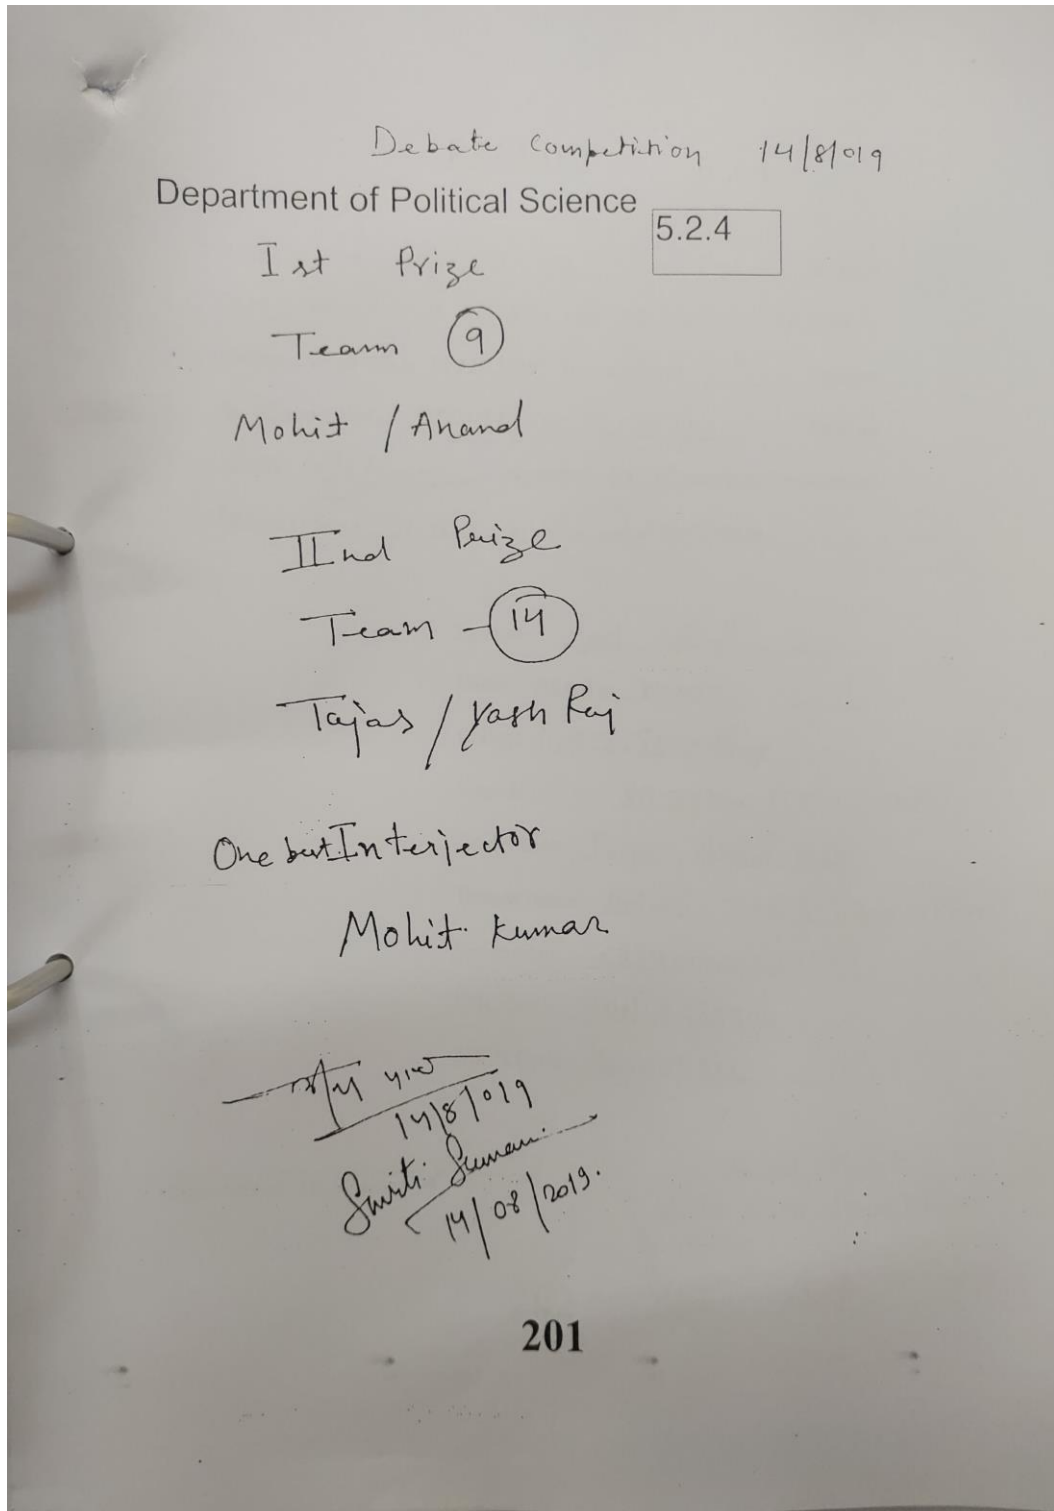 Debate Competition 14/8/019
Department of Political Science
5.2.4
Ist Prize
Team 9
Mohit / Anand
IInd Prize
Team - 14
Tajas / Yash Raj
One best Interjector
Mohit Kumar
14/8/019
Smriti Suman
14/08/2019.
201